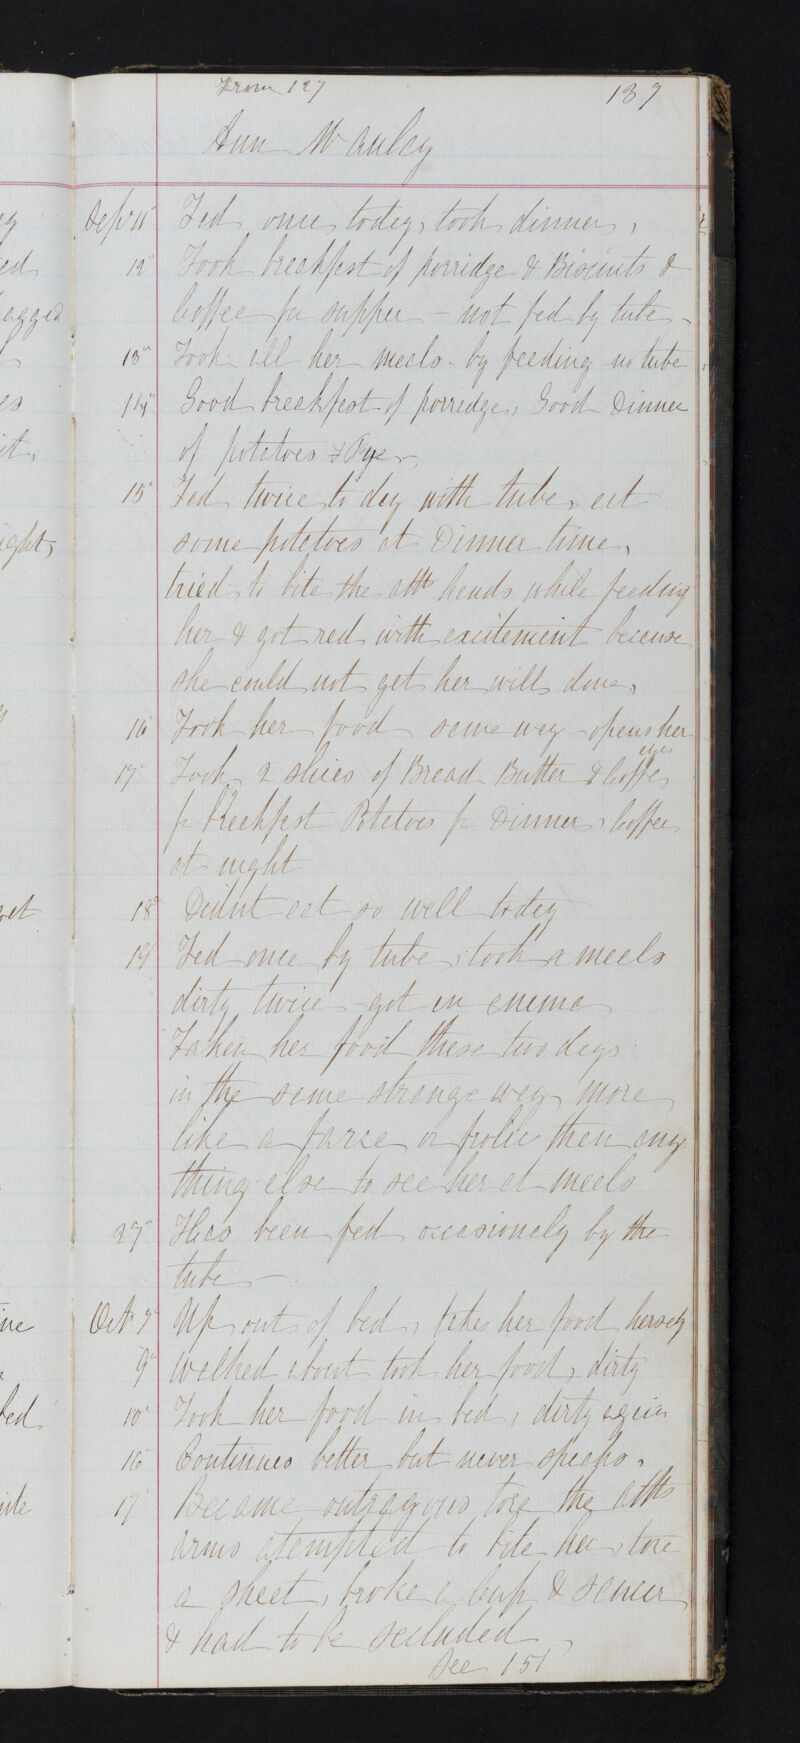 From 127
137
Ann McAuley
Sept 11" Fed once today, took dinner,
12" Took breakfast of porridge & Biscuits &
Coffee for supper - not fed by tube
13" Took all her meals by feeding no tube
14" Good breakfast of porridge, Good Dinner
of potatoes & Pye
15" Fed twice to day with tube, eat
some potatoes at Dinner time,
tried to bite the attt hands while feeding
her & got red with excitement because
she could not get her will done,
16 Took her food same way - opens her
eyes
17" Took 2 slices of Bread Butter & Coffee
for breakfast Potatoes for Dinner, Coffee
at night
18" Didnt eat so well today
19 Fed once by tube, took 2 meals
dirty twice - got an enema
Taken her food these two days
in the same strange way, more
like a farse or frolic then any
thing else to see her at meals
27" Has been fed occasionely by the
tube -
Oct 7" Up out of bed, takes her food herself
9" Walked about took her food, dirty
10" Took her food in bed, dirty again
16" Continues better but never speaks,
17" Became outragous tore the attts
arms atempted to bite her, tore
a sheet, broke a Cup & saucer
& had to be secluded
See 151
ey
ed
agged
es
it,
ight,
ret
ine
ed
ite